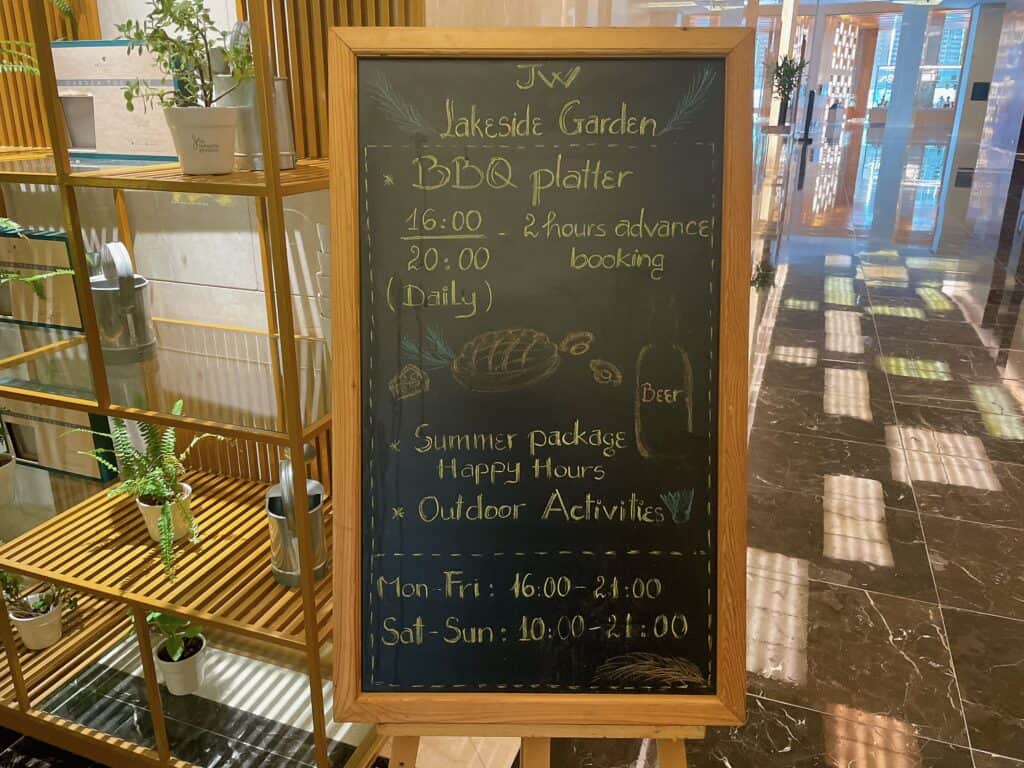 JW
Lakeside Garden
* BBQ platter
16:00 - 2 hours advance
20:00 booking
(Daily)
Beer
* Summer package
Happy Hours
* Outdoor Activities
Mon-Fri: 16:00-21:00
Sat-Sun: 10:00-21:00